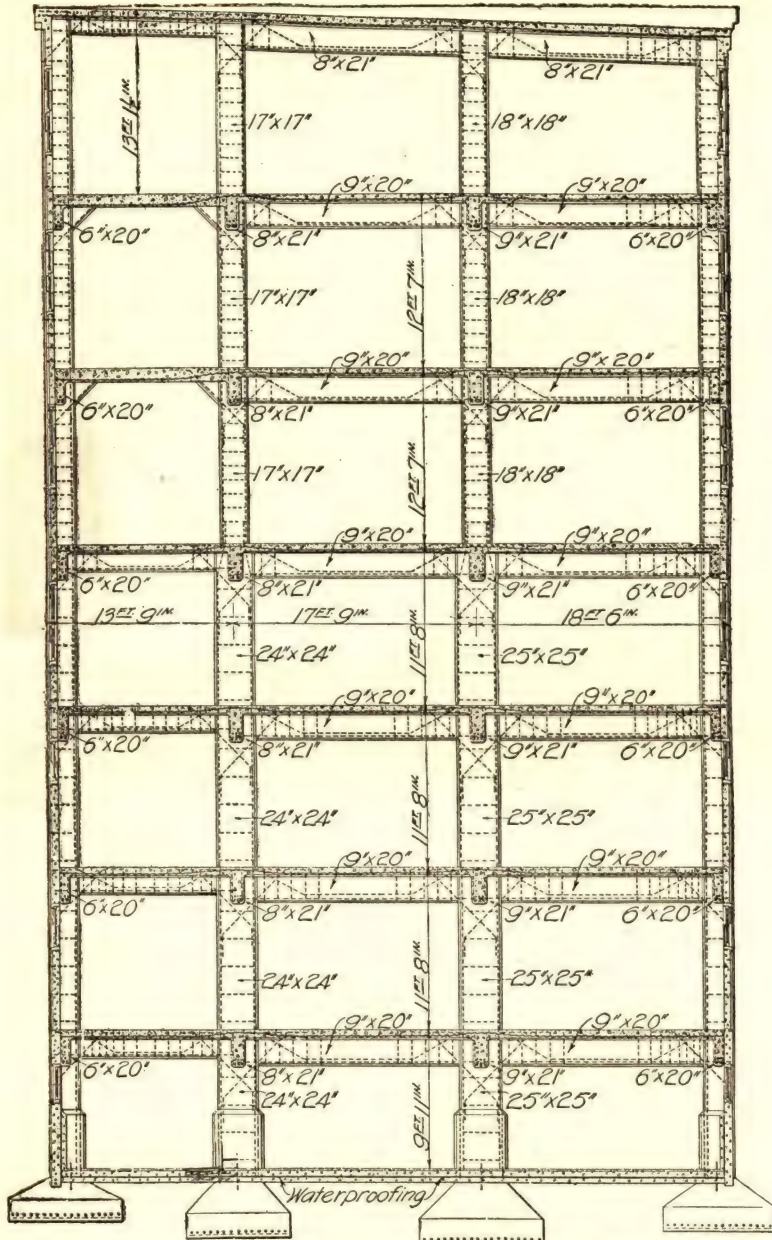 8"x21" 8"x21"
13FT 1½IN.
17"x17" 18"x18"
9"x20" 9"x20"
6"x20" 8"x21" 9"x21" 6"x20"
12FT 7IN.
17"x17" 18"x18"
9"x20" 9"x20"
6"x20" 8"x21" 9"x21" 6"x20"
12FT 7IN.
17"x17" 18"x18"
9"x20" 9"x20"
6"x20" 8"x21" 9"x21" 6"x20"
13FT 9IN. 17FT 9IN. 18FT 6IN.
11FT 8IN.
24"x24" 25"x25"
9"x20" 9"x20"
6"x20" 8"x21" 9"x21" 6"x20"
11FT 8IN.
24"x24" 25"x25"
9"x20" 9"x20"
6"x20" 8"x21" 9"x21" 6"x20"
11FT 8IN.
24"x24" 25"x25"
9"x20" 9"x20"
6"x20" 8"x21" 9"x21" 6"x20"
24"x24" 25"x25"
9FT 11IN.
Waterproofing